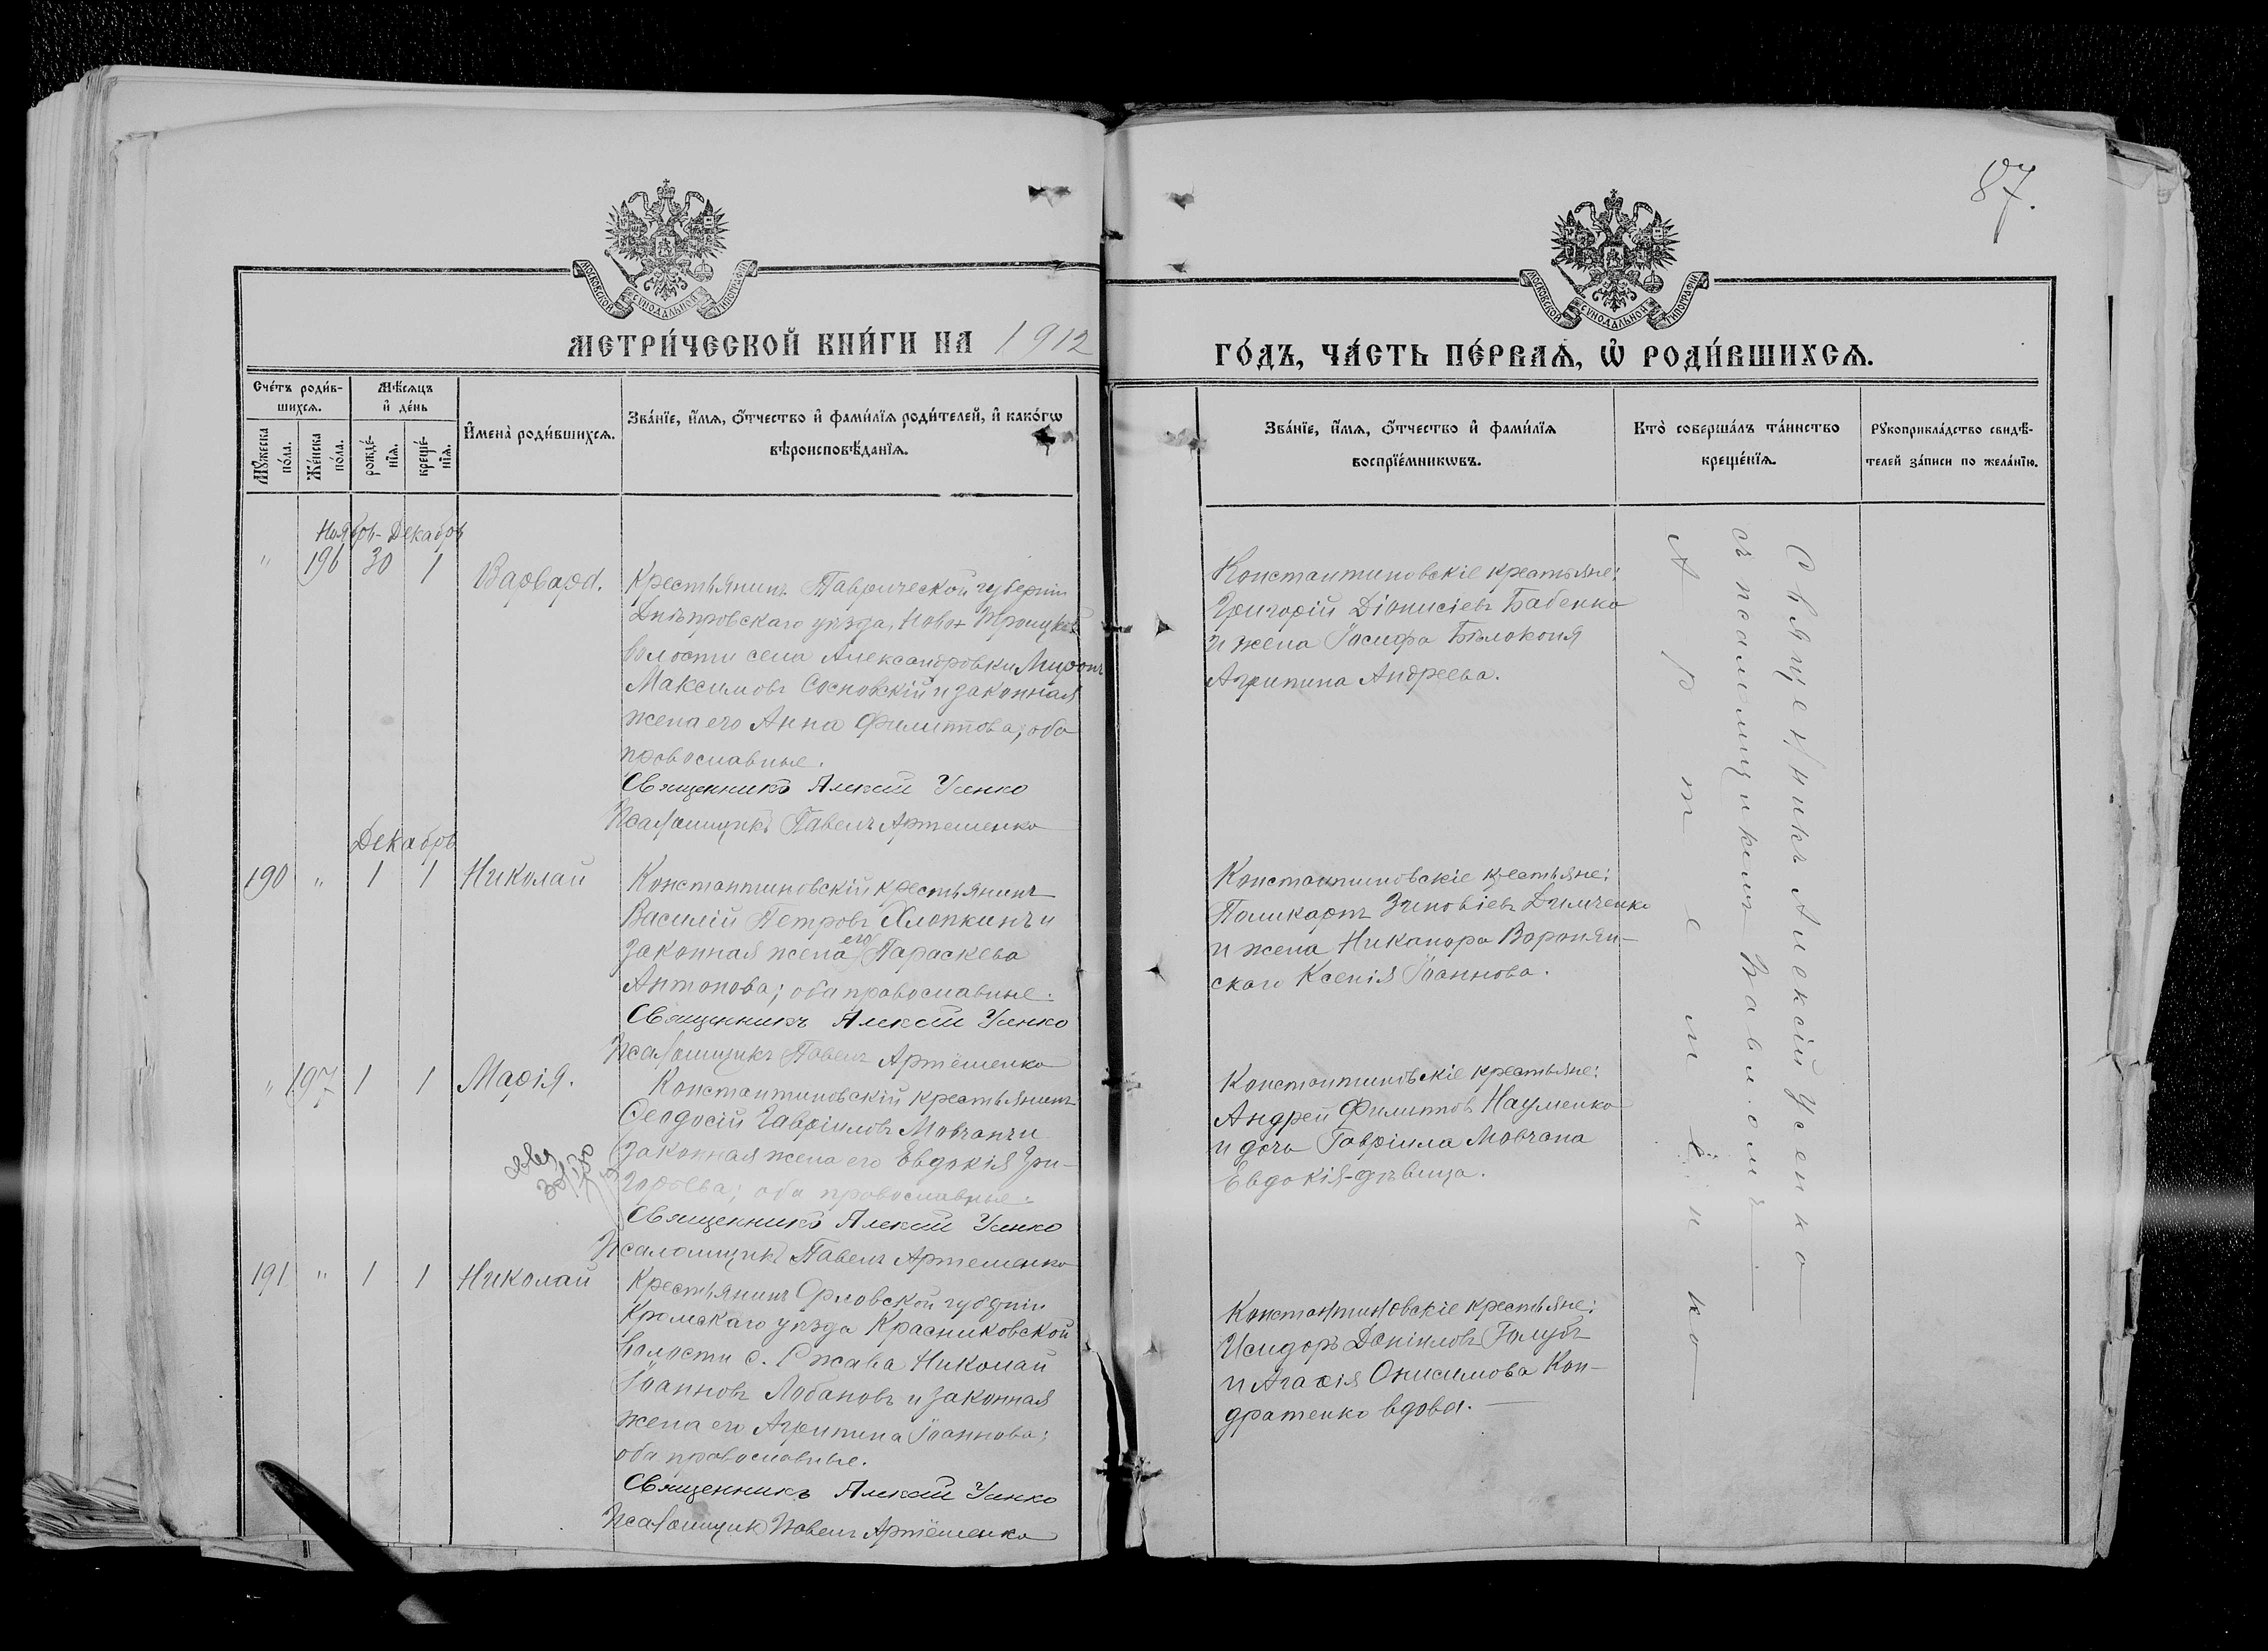 87.
МОСКОВСКОЙ СѴНОДАЛЬНОЙ ТИПОГРАФІИ
МОСКОВСКОЙ СѴНОДАЛЬНОЙ ТИПОГРАФІИ
МЕТРИ́ЧЕСКОЙ КНИ́ГИ НА 1912
ГО́ДЪ, ЧА́СТЬ ПЕ́РВАѦ, Ѡ҆ РОДИ́ВШИХСѦ.
Сче́тъ роди́в-
шихсѧ.
Мꙋ́жеска по́ла.
Же́нска по́ла.
Мѣ́сѧцъ и҆ де́нь
рожде́-
нїѧ.
креще́-
нїѧ.
И҆мена̀ роди́вшихсѧ.
Зва́нїе, и҆́мѧ, ѻ҆́тчество и҆ фами́лїѧ роди́телей, и҆ како́гѡ
вѣроисповѣ́данїѧ.
Зва́нїе, и҆́мѧ, ѻ҆́тчество и҆ фами́лїѧ
воспрїе́мникѡвъ.
Кто̀ соверша́лъ та́инство
креще́нїѧ.
Рꙋкоприкла́дство свидѣ́-
телей за́писи по жела́нїю.
Ноябрь-Декабрь
" 196 30 1 Варвара.
Крестьянинъ Таврической губерніи
Днѣпровскаго уѣзда, Ново-Троицкой
волости села Александровки Миронъ
Максимовъ Сосновскій и законная
жена его Анна Филиппова; оба
православные.
Священникъ Алексій Усенко
Псаломщикъ Павелъ Артеменко
Константиновскіе крестьяне:
Григорій Діонисіевъ Бабенко
и жена Іосифа Бѣлоконя
Агрипина Андреева.
Декабрь
190 " 1 1 Николай
Константиновскій крестьянинъ
Василій Петровъ Хлопкинъ и
законная жена его Параскева
Антонова; оба православные.
Священникъ Алексій Усенко
Псаломщикъ Павелъ Артёменко
Константиновскіе крестьяне:
Поликарпъ Зиновіевъ Димченко
и жена Никанора Воронян-
скаго Ксенія Іоаннова.
" 197 1 1 Марія.
Константиновскій крестьянинъ
Ѳеодосій Гавріиловъ Мовчанъ и
законная жена его Евдокія Гри-
горьева; оба православные.
Священникъ Алексій Усенко
Псаломщикъ Павелъ Артеменко
Константиновскіе крестьяне:
Андрей Филипповъ Науменко
и дочь Гавріила Мовчана
Евдокія-дѣвица.
191 " 1 1 Николай
Крестьянинъ Орловской губерніи
Кромскаго уѣзда Красниковской
волости с. Ржава Николай
Іоанновъ Лобановъ и законная
жена его Агрипина Іоаннова;
оба православные.
Священникъ Алексій Усенко
Псаломщикъ Павелъ Артёменко
Константиновскіе крестьяне:
Исидоръ Даніиловъ Голубъ
и Агафія Онисимова Кон-
дратенко вдова.
Священникъ Алексій Усенко
съ псаломщикомъ Павломъ
Артеменко